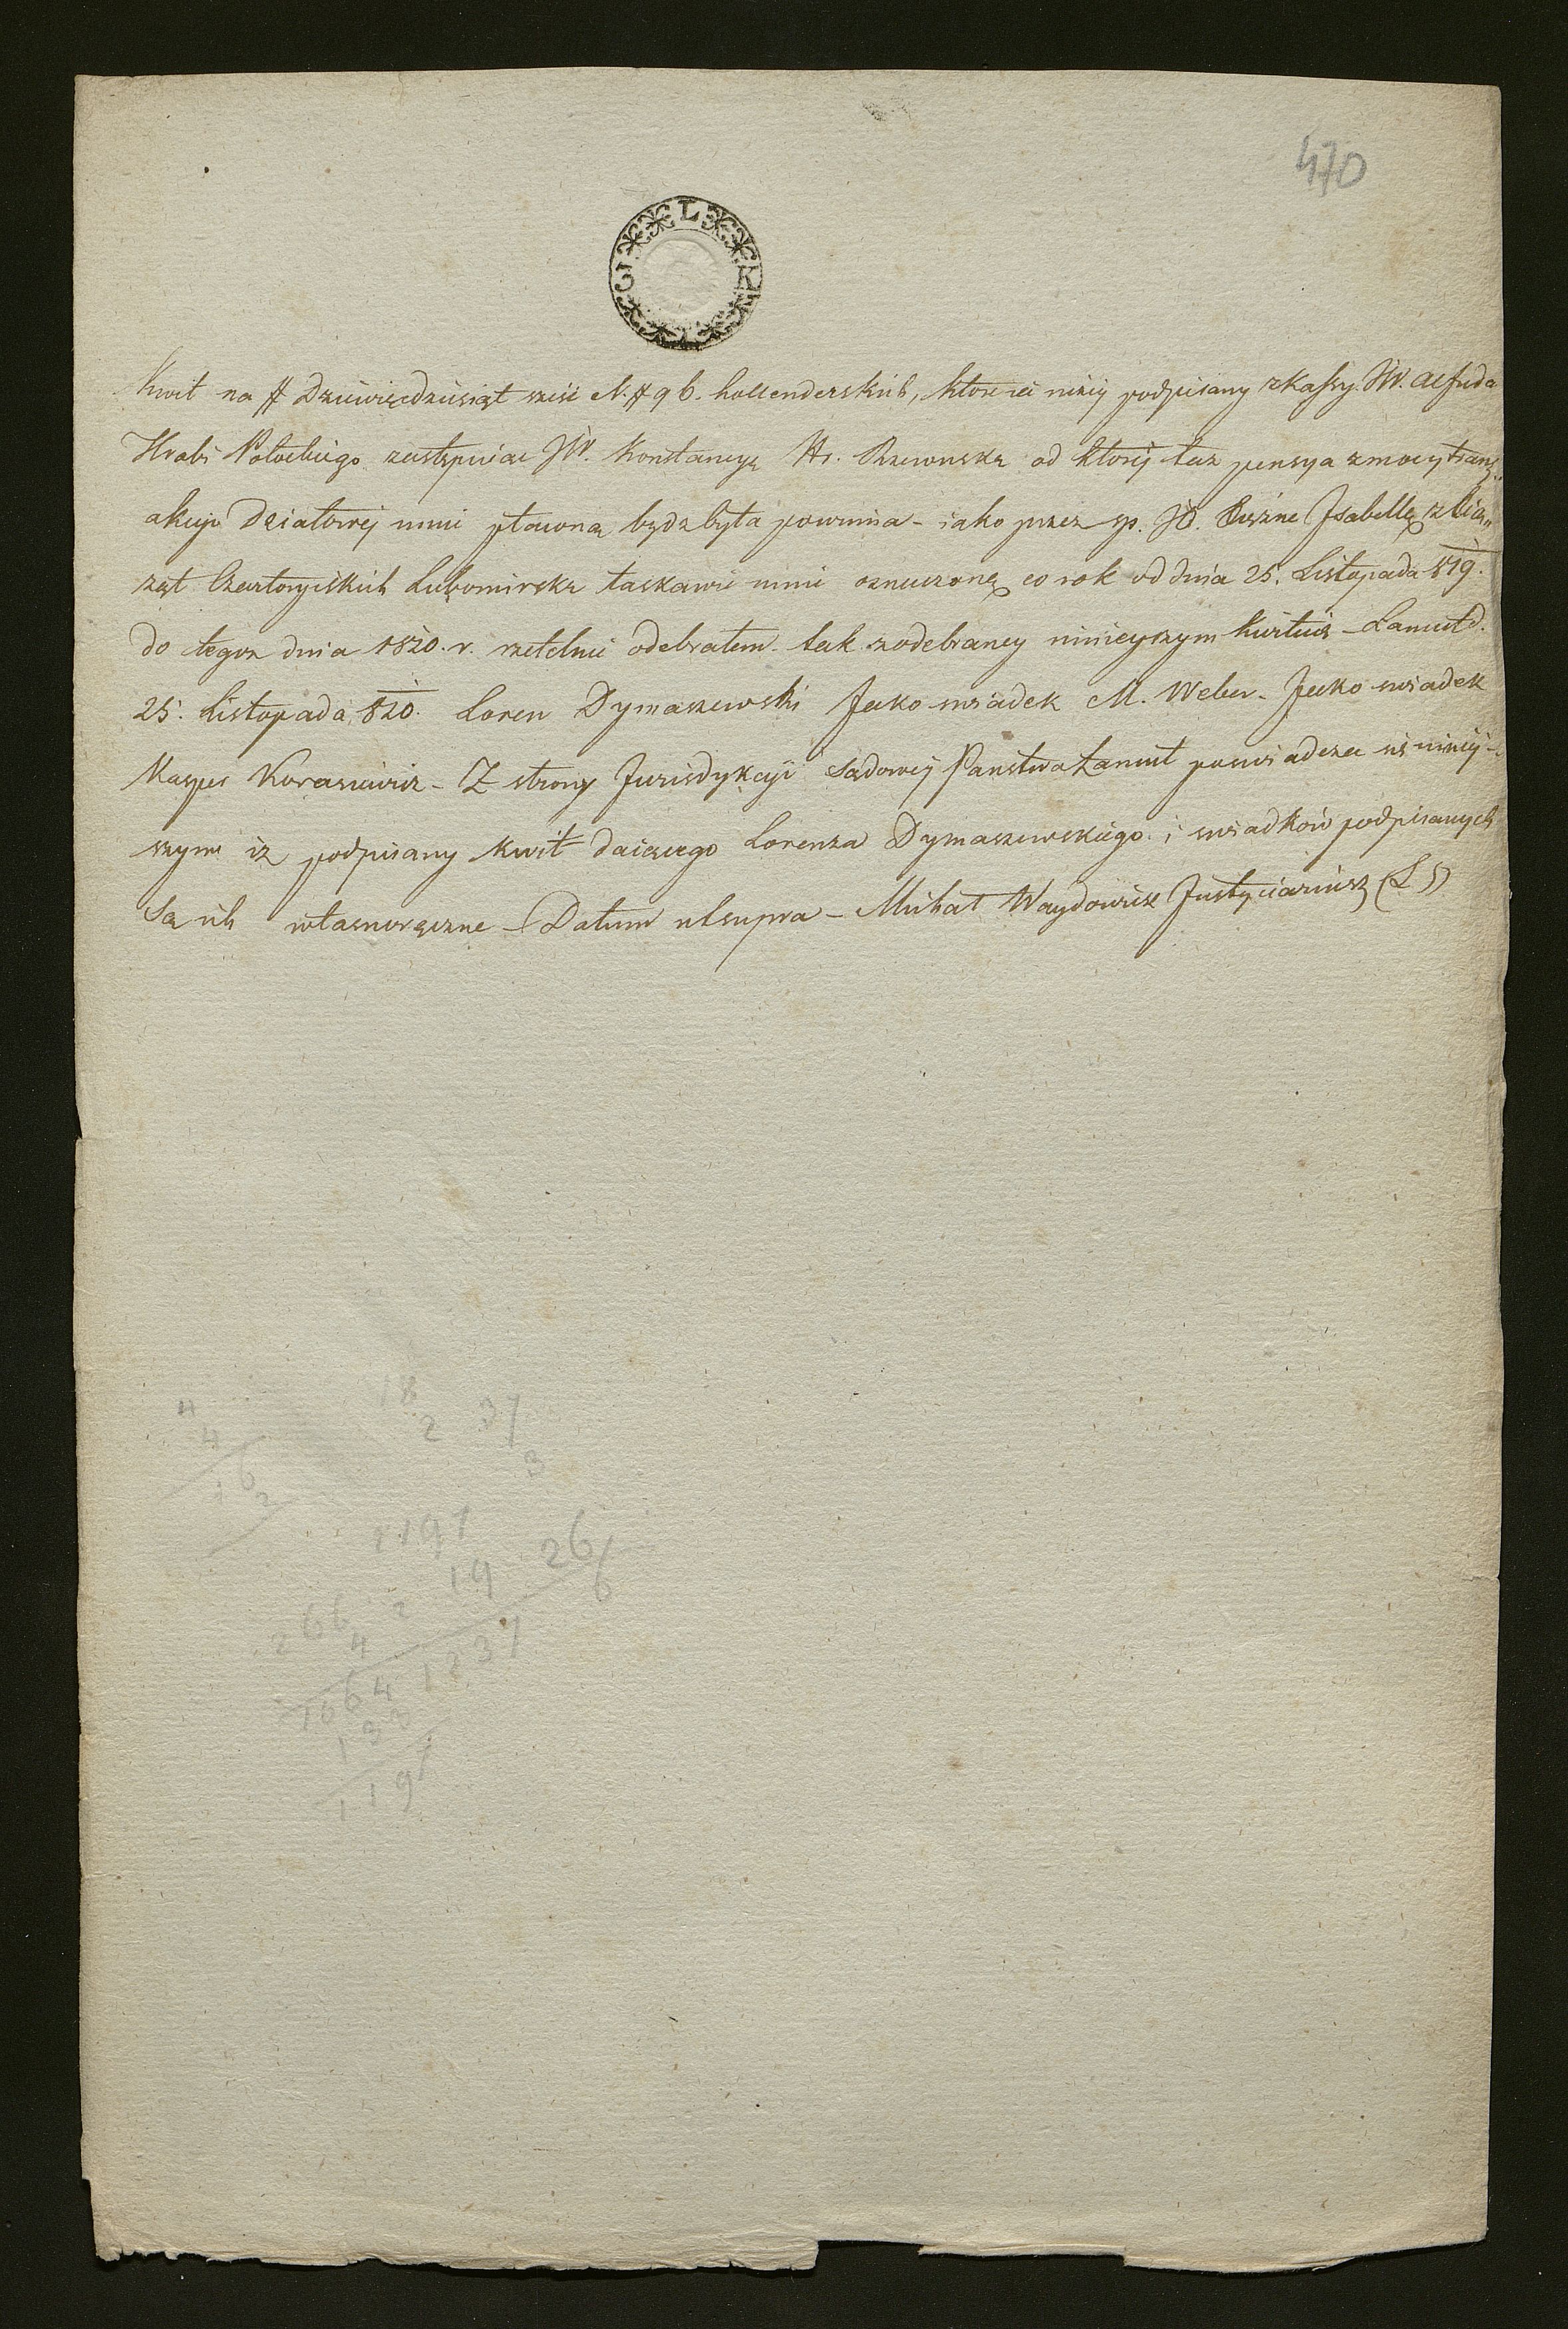 470
L
3 K
Kwit na # Dziewięcdziesiąt sześć N. # 96. hollenderskich, ktore ia niżey podpisany z Kassy JW. Alfreda
Hrabi Potockiego zastępuiąc JW. Konstancyą Hr. Rzewuską od ktorej taż pensya z mocy trans„
akcyi Działowej mnie płacona będz była powinna – iako przez sp. JO. Xiężne Isabellę z Xią„
żąt Czartoryiskich Lubomirską łaskawie mnie oznaczoną co rok od dnia 25. Listopada 819.
do tegoż dnia 1820. r. rzetelnie odebrałem. tak z odebraney ninieyszym kwituię – Łańcut d.
25. Listopada 820. Loren Dymaszewski Jako swiadek M. Weber – Jako swiadek
Kasper Korasiewicz – Z strony Jurisdykcyi Sądowey Państwa Łańcut poswiadcza się niniey–
szym iż podpisany Kwit daiącego Lorenza Dymaszewskiego i swiadków podpisanych
Są ich własnoręczne – Datum ut supra – Michał Waydowicz Justycÿariusz (LS)
4 18
4 2 37
16 3
2
1197
19 26
266 2 6
4
1064 1237
133
1197